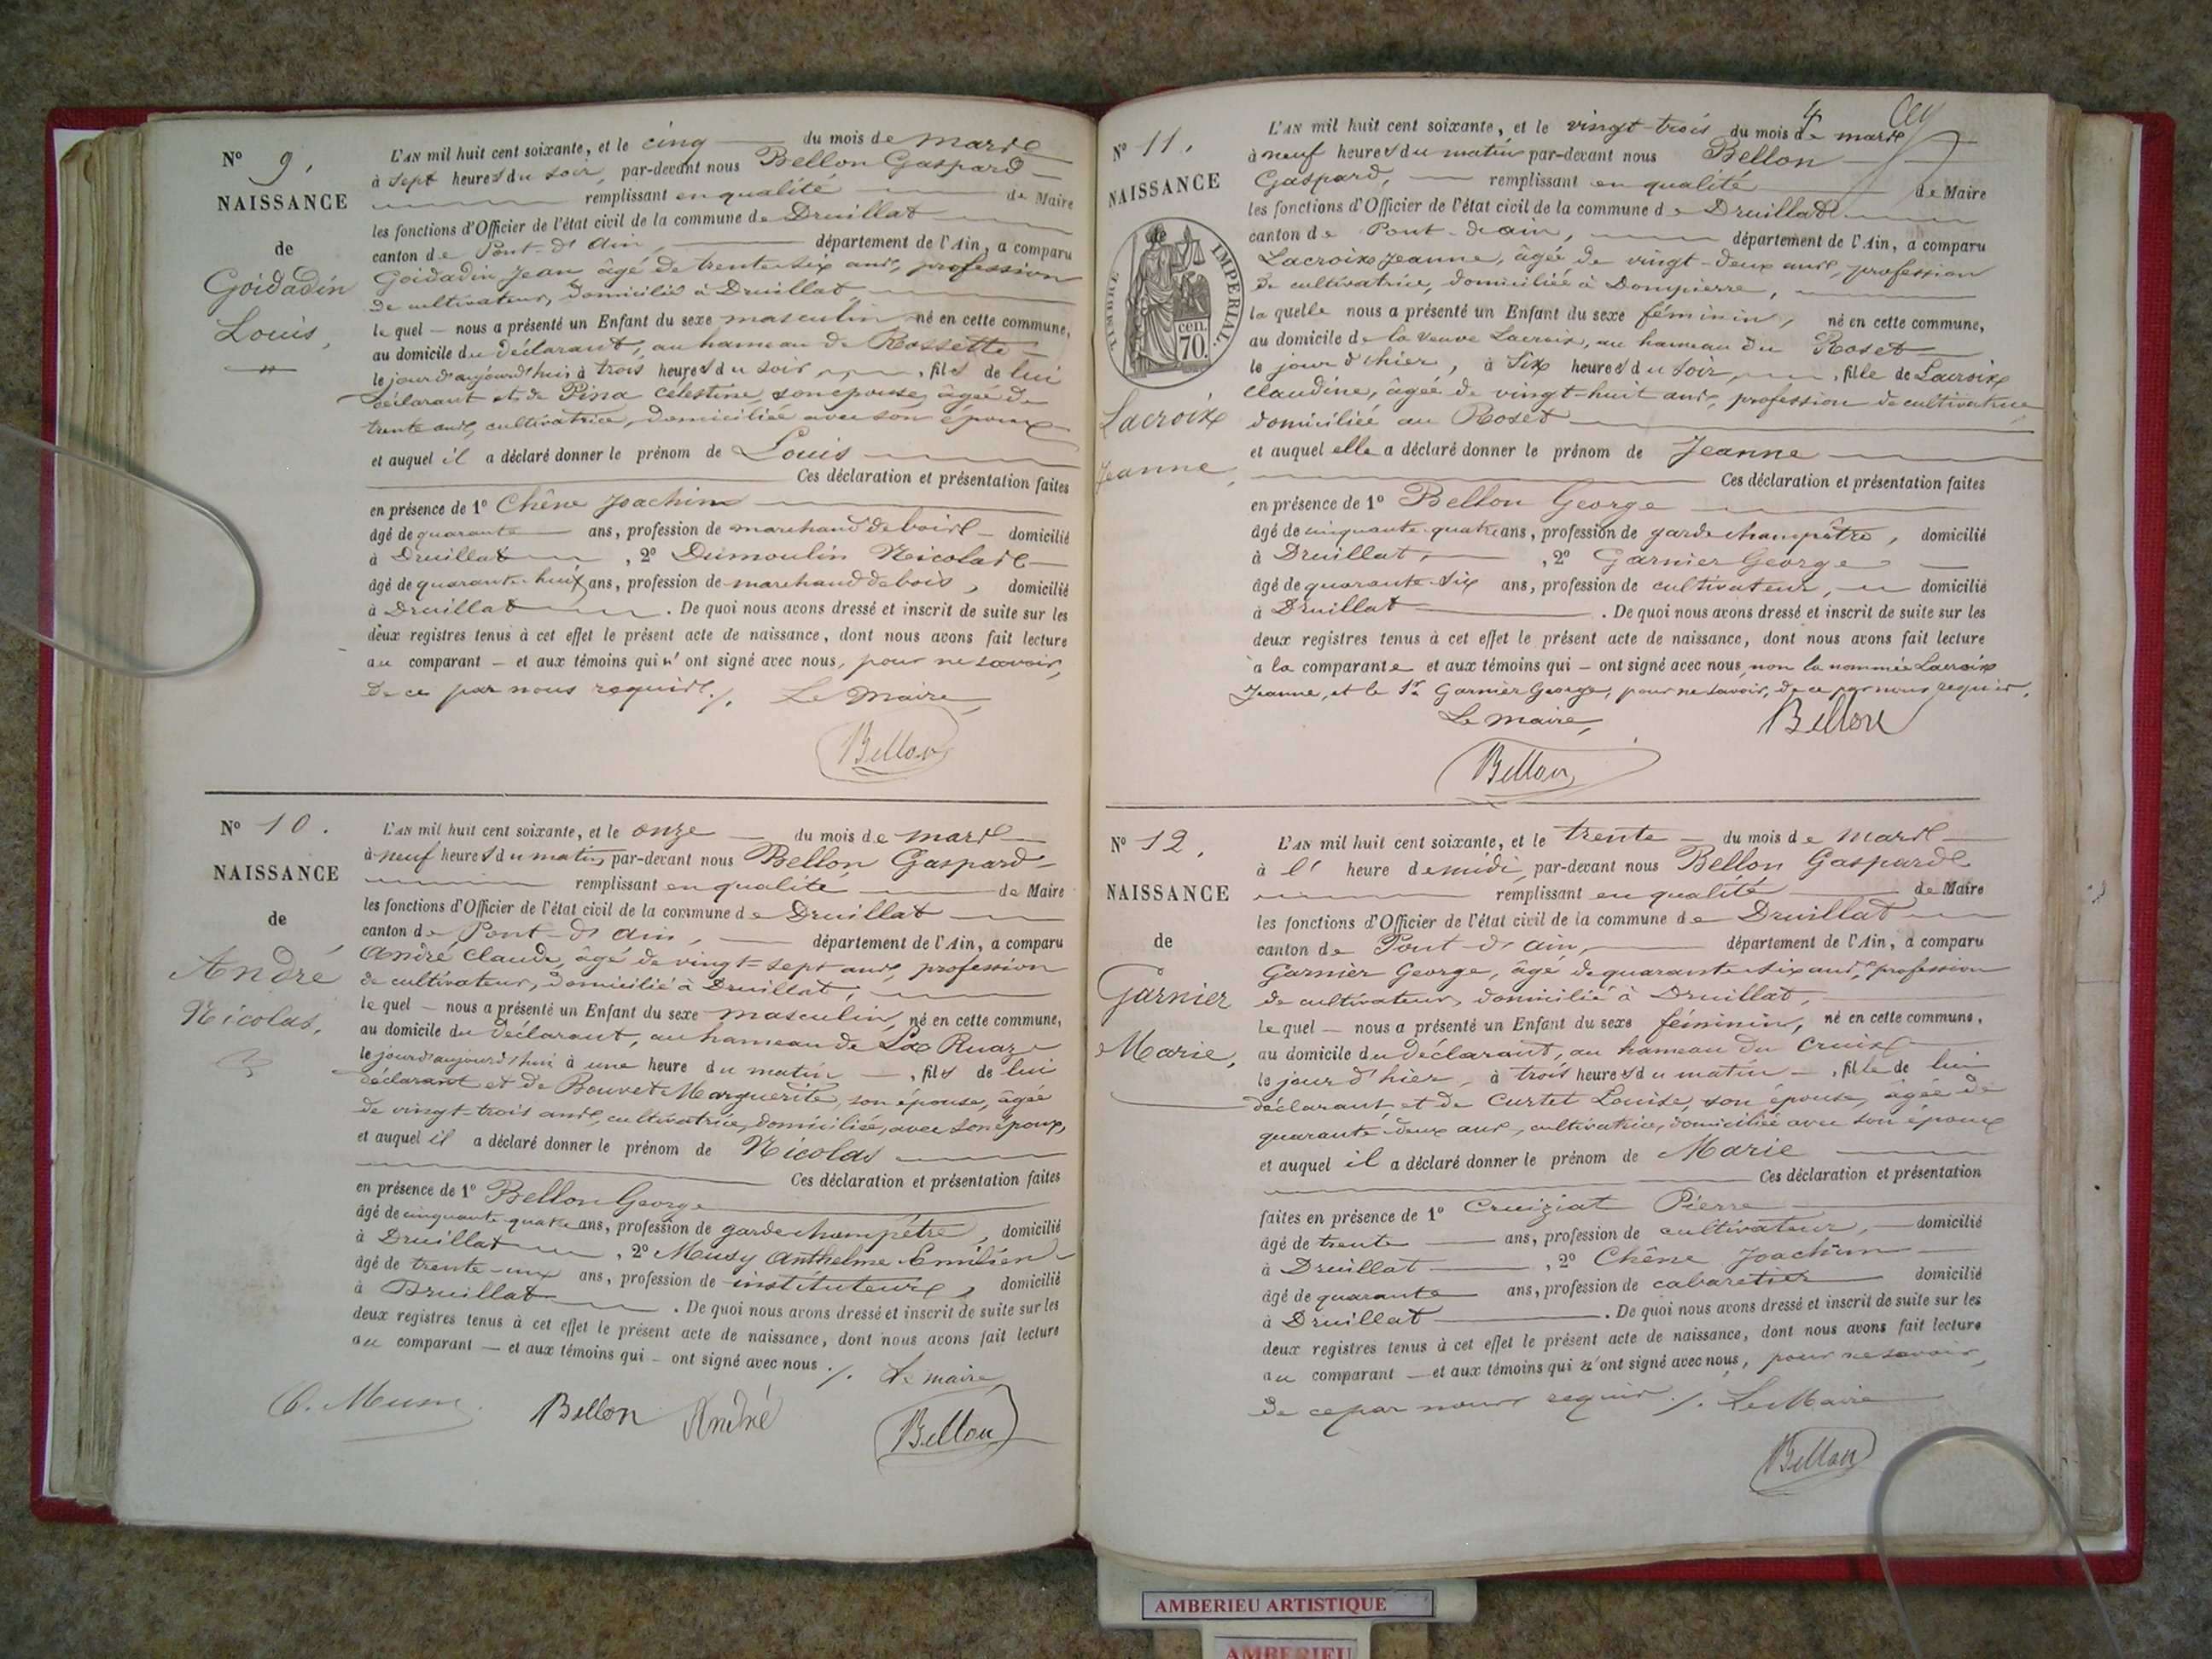 N° 9.
NAISSANCE
de
Goidadin
Louis,
L'AN mil huit cent soixante, et le cinq du mois de mars
à sept heures du soir, par-devant nous Bellon Gaspard
remplissant en qualité de Maire
les fonctions d'Officier de l'état civil de la commune de Druillat
canton de Pont-d'Ain, département de l'Ain, a comparu
Goidadin Jean âgé de trente-six ans, profession
de cultivateur, domicilié à Druillat,
lequel nous a présenté un Enfant du sexe masculin né en cette commune,
au domicile du déclarant, au hameau de Rossette
le jour d'aujourd'hui à trois heures du soir, fils de lui
déclarant et de Pina Célestine, son épouse, âgée de
trente ans, cultivatrice, domiciliée avec son époux
et auquel il a déclaré donner le prénom de Louis
Ces déclaration et présentation faites
en présence de 1° Chêne Joachim
âgé de quarante ans, profession de marchand de bois domicilié
à Druillat, 2° Dumoulin Nicolas
âgé de quarante-huit ans, profession de marchand de bois, domicilié
à Druillat. De quoi nous avons dressé et inscrit de suite sur les
deux registres tenus à cet effet le présent acte de naissance, dont nous avons fait lecture
au comparant – et aux témoins qui n'ont signé avec nous, pour ne savoir,
de ce par nous requis./. Le Maire,
Bellon
N° 10.
NAISSANCE
de
André
Nicolas.
L'AN mil huit cent soixante, et le onze du mois de mars
à neuf heures du matin, par-devant nous Bellon Gaspard
remplissant en qualité de Maire
les fonctions d'Officier de l'état civil de la commune de Druillat
canton de Pont-d'Ain, département de l'Ain, a comparu
André Claude, âgé de vingt-sept ans, profession
de cultivateur, domicilié à Druillat,
lequel – nous a présenté un Enfant du sexe masculin, né en cette commune,
au domicile du déclarant, au hameau de La Ruaz
le jour d'aujourd'hui à une heure du matin – , fils de lui
déclarant et de Bouvet Marguerite, son épouse, âgée
de vingt-trois ans, cultivatrice, domiciliée, avec son époux,
et auquel il a déclaré donner le prénom de Nicolas
Ces déclaration et présentation faites
en présence de 1° Bellon George
âgé de cinquante-quatre ans, profession de garde champêtre, domicilié
à Druillat, 2° Musy Anthelme Emilien
âgé de trente-un ans, profession de instituteur, domicilié
à Druillat. De quoi nous avons dressé et inscrit de suite sur les
deux registres tenus à cet effet le présent acte de naissance, dont nous avons fait lecture
au comparant – et aux témoins qui – ont signé avec nous./. Le maire,
Bellon André Bellon
4
N° 11.
NAISSANCE
TIMBRE IMPÉRIAL
70 cen.
Lacroix
Jeanne,
L'AN mil huit cent soixante, et le vingt-trois du mois de mars
à neuf heures du matin par-devant nous Bellon
Gaspard, remplissant en qualité de Maire
les fonctions d'Officier de l'état civil de la commune de Druillat
canton de Pont-d'ain, département de l'Ain, a comparu
Lacroix Jeanne, âgée de vingt-deux ans, profession
de cultivatrice, domiciliée à Dompierre,
laquelle nous a présenté un Enfant du sexe féminin, né en cette commune,
au domicile de la veuve Lacroix, au hameau du Roset
le jour d'hier, à six heures du soir, fille de Lacroix
Claudine, âgée de vingt-huit ans, profession de cultivatrice
domiciliée au Roset
et auquel elle a déclaré donner le prénom de Jeanne
Ces déclaration et présentation faites
en présence de 1° Bellon George
âgé de cinquante-quatre ans, profession de garde champêtre, domicilié
à Druillat, 2° Garnier George
âgé de quarante-six ans, profession de cultivateur, domicilié
à Druillat. De quoi nous avons dressé et inscrit de suite sur les
deux registres tenus à cet effet le présent acte de naissance, dont nous avons fait lecture
à la comparante et aux témoins qui – ont signé avec nous, non la nommée Lacroix
Jeanne, et le Sr Garnier George, pour ne savoir, de ce par nous requis.
Le maire, Bellon
Bellon
N° 12.
NAISSANCE
de
Garnier
Marie,
L'AN mil huit cent soixante, et le trente du mois de mars
à l'heure de midi, par-devant nous Bellon Gaspard
remplissant en qualité de Maire
les fonctions d'Officier de l'état civil de la commune de Druillat
canton de Pont-d'ain, département de l'Ain, a comparu
Garnier George, âgé de quarante-six ans, profession
de cultivateur, domicilié à Druillat,
lequel – nous a présenté un Enfant du sexe féminin, né en cette commune,
au domicile du déclarant, au hameau du Cruix
le jour d'hier, à trois heures du matin – , fille de lui
déclarant et de Curtet Louise, son épouse, âgée de
quarante-deux ans, cultivatrice, domiciliée avec son époux
et auquel il a déclaré donner le prénom de Marie
Ces déclaration et présentation
faites en présence de 1° Cruiziat Pierre
âgé de trente ans, profession de cultivateur, domicilié
à Druillat, 2° Chêne Joachim
âgé de quarante ans, profession de cabaretier domicilié
à Druillat. De quoi nous avons dressé et inscrit de suite sur les
deux registres tenus à cet effet le présent acte de naissance, dont nous avons fait lecture
au comparant – et aux témoins qui n'ont signé avec nous, pour ne savoir,
de ce par nous requis./. Le Maire
Bellon
AMBERIEU ARTISTIQUE
AMBERIEU